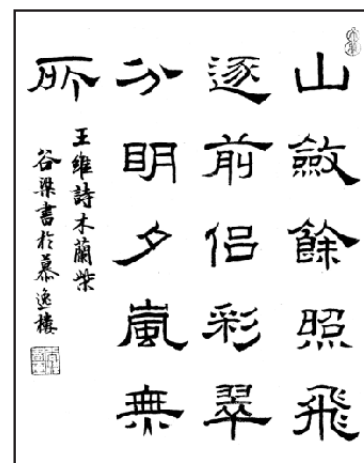 山斂餘照飛
逐前侶彩翠
分明夕嵐無
所
王維詩木蘭柴
谷梁書於慕逸樓